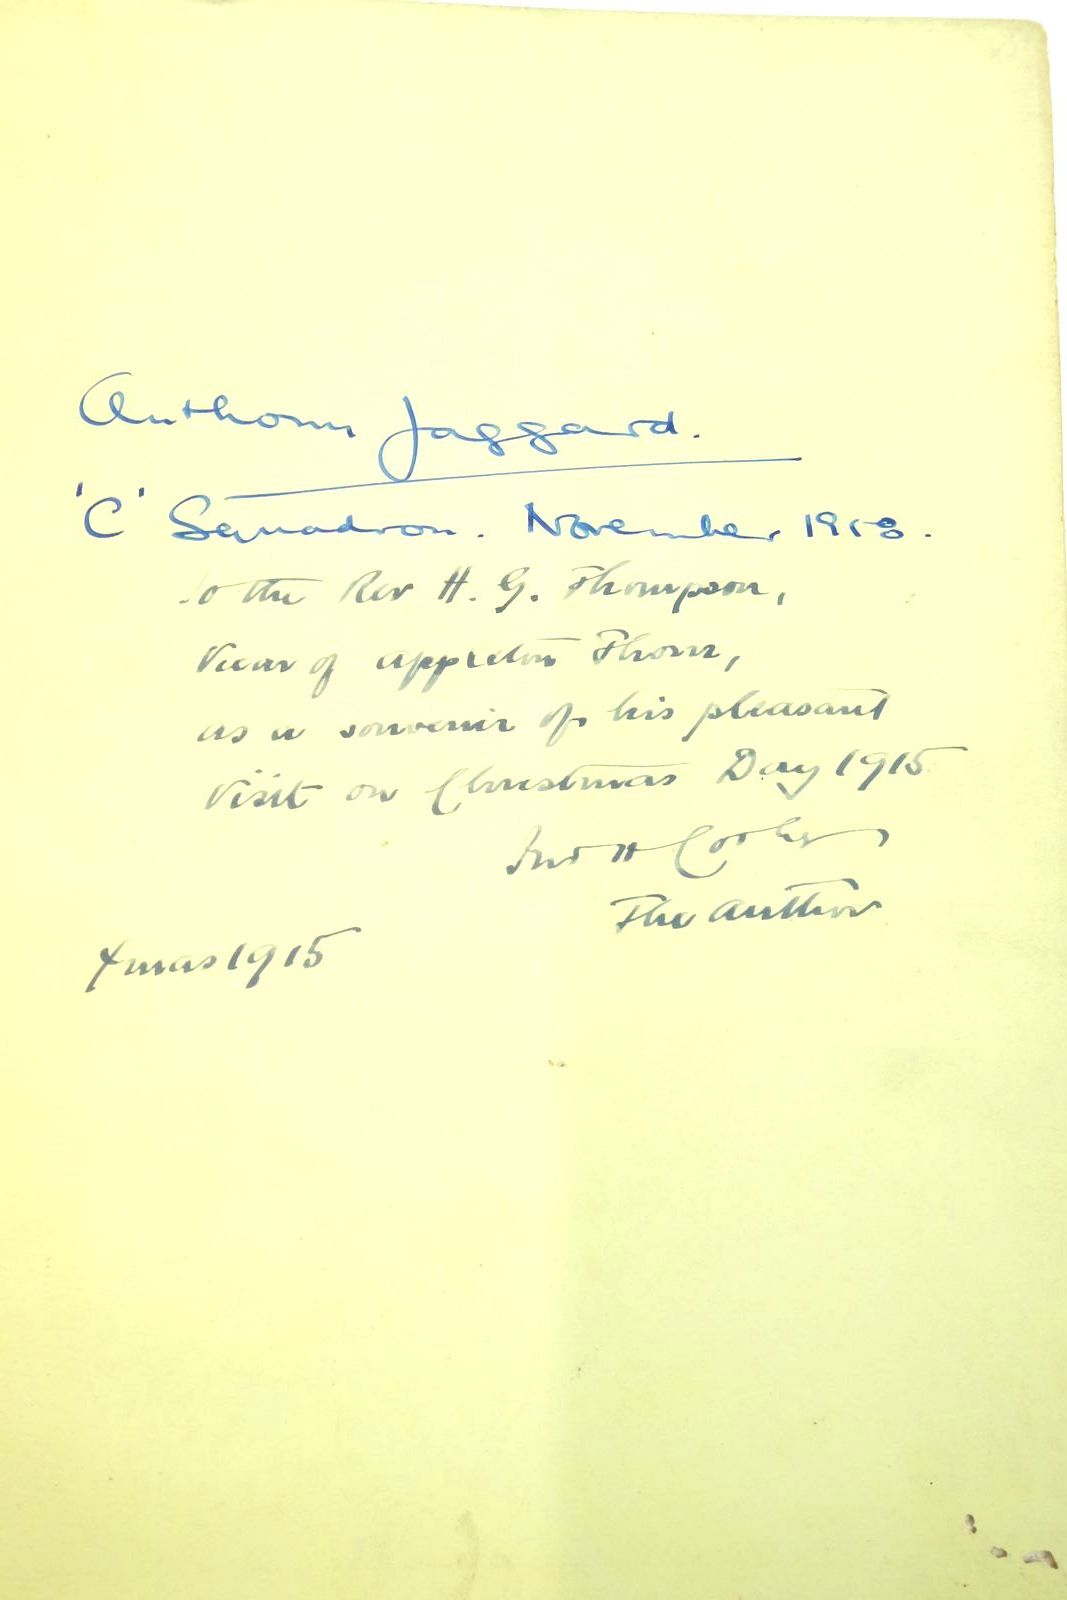 Anthony Jaggard.
'C' Squadron. November 1958.
To the Rev H. G. Thompson,
Vicar of Appleton Thorn,
as a souvenir of his pleasant
visit on Christmas Day 1915
Jno H Cooke
The Author
Xmas 1915